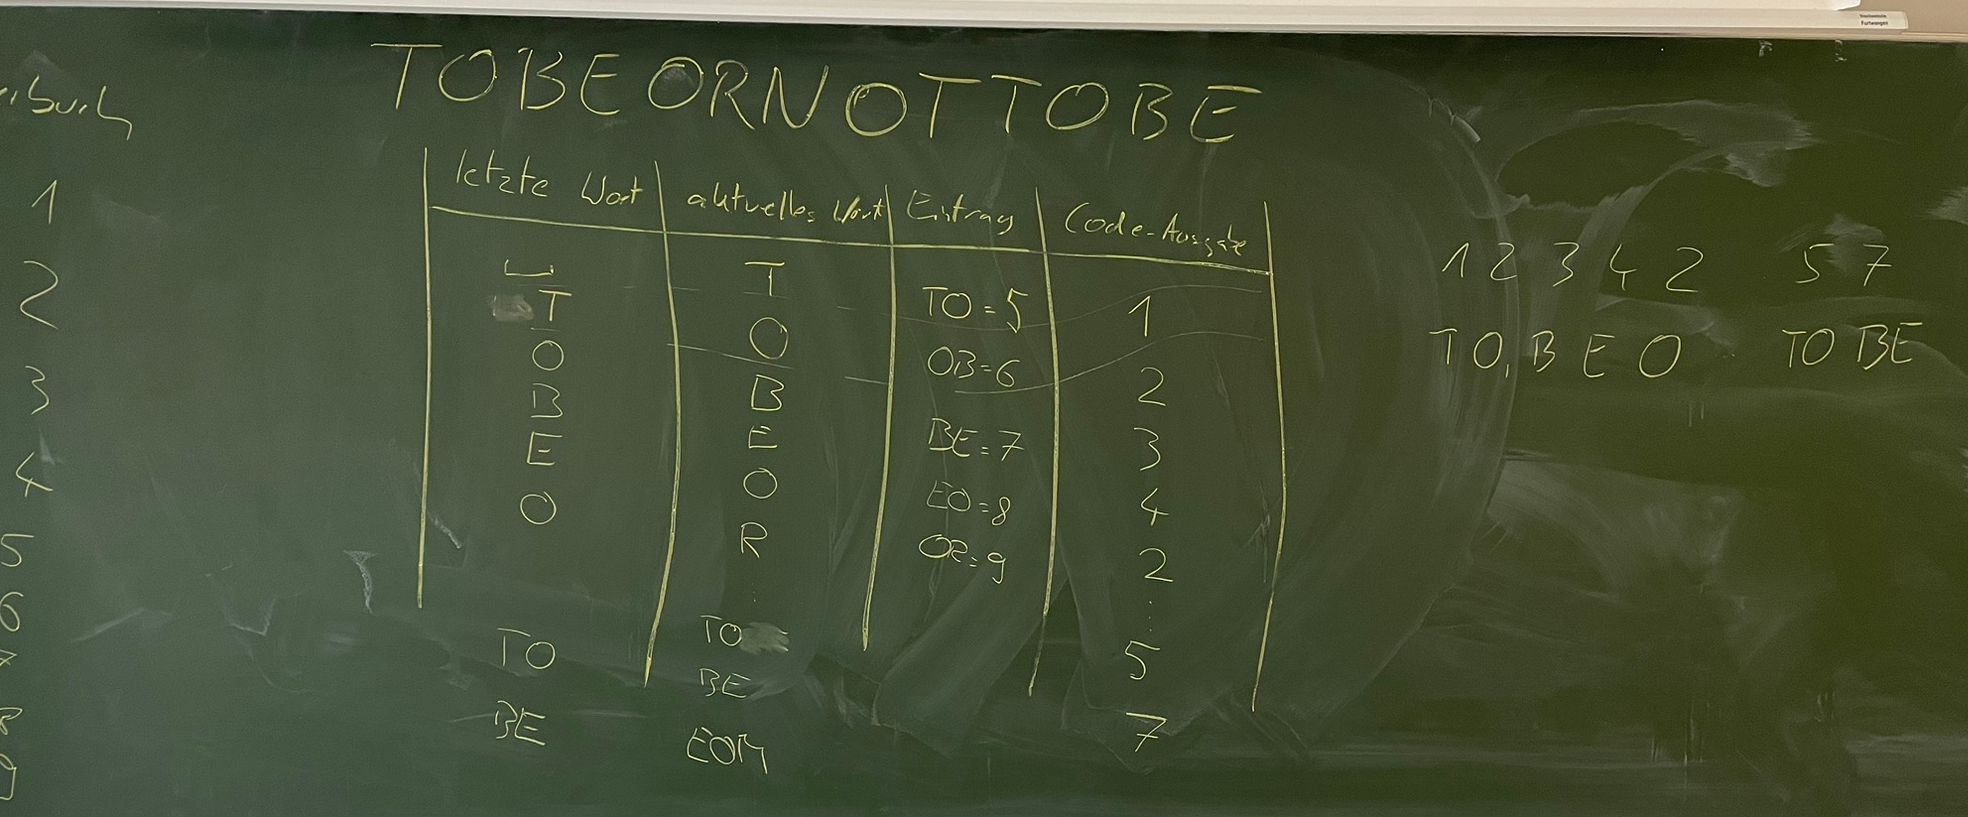 TOBEORNOTTOBE
letzte Wort aktuelles Wort Eintrag Code-Ausgabe
T
T O TO=5 1
O B OB=6 2
B E BE=7 3
E O EO=8 4
O R OR=9 2
TO TO 5
BE
BE EOM 7
1 2 3 4 2 5 7
TO,BEO TO BE
1
2
3
4
5
6
7
8
9